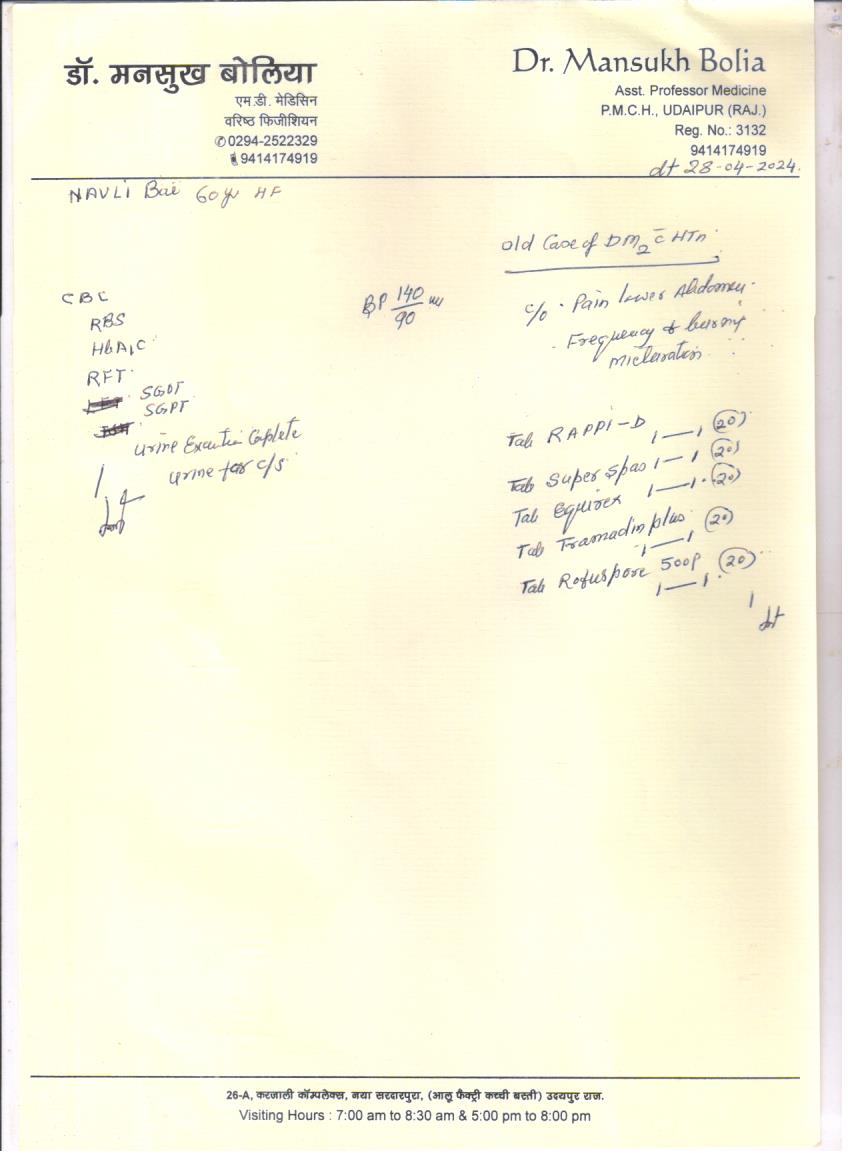 डॉ. मनसुख बोलिया
एम.डी. मेडिसिन
वरिष्ठ फिजीशियन
✆0294-2522329
9414174919
Dr. Mansukh Bolia
Asst. Professor Medicine
P.M.C.H., UDAIPUR (RAJ.)
Reg. No.: 3132
9414174919
dt 28-04-2024.
NAVLI Bai 60yr HF
Old Case of DM2 c̄ HTn
CBC
RBS
HbA1C
RFT
SGOT
SGPT
Urine Complete
Urine for c/s
BP 140/90
c/o · Pain lower Abdomen
· Frequency & burning
micturation
Tab RAPPI-D 1—1 (20)
Tab Super Spas 1—1 (20)
Tab Equirex 1—1 (20)
Tab Tramadin plus (20)
1—1
Tab Rofuspore 500P (20)
1—1
26-A, करजाली कॉम्पलेक्स, नया सरदारपुरा, (आलू फैक्ट्री कच्ची बस्ती) उदयपुर राज.
Visiting Hours : 7:00 am to 8:30 am & 5:00 pm to 8:00 pm